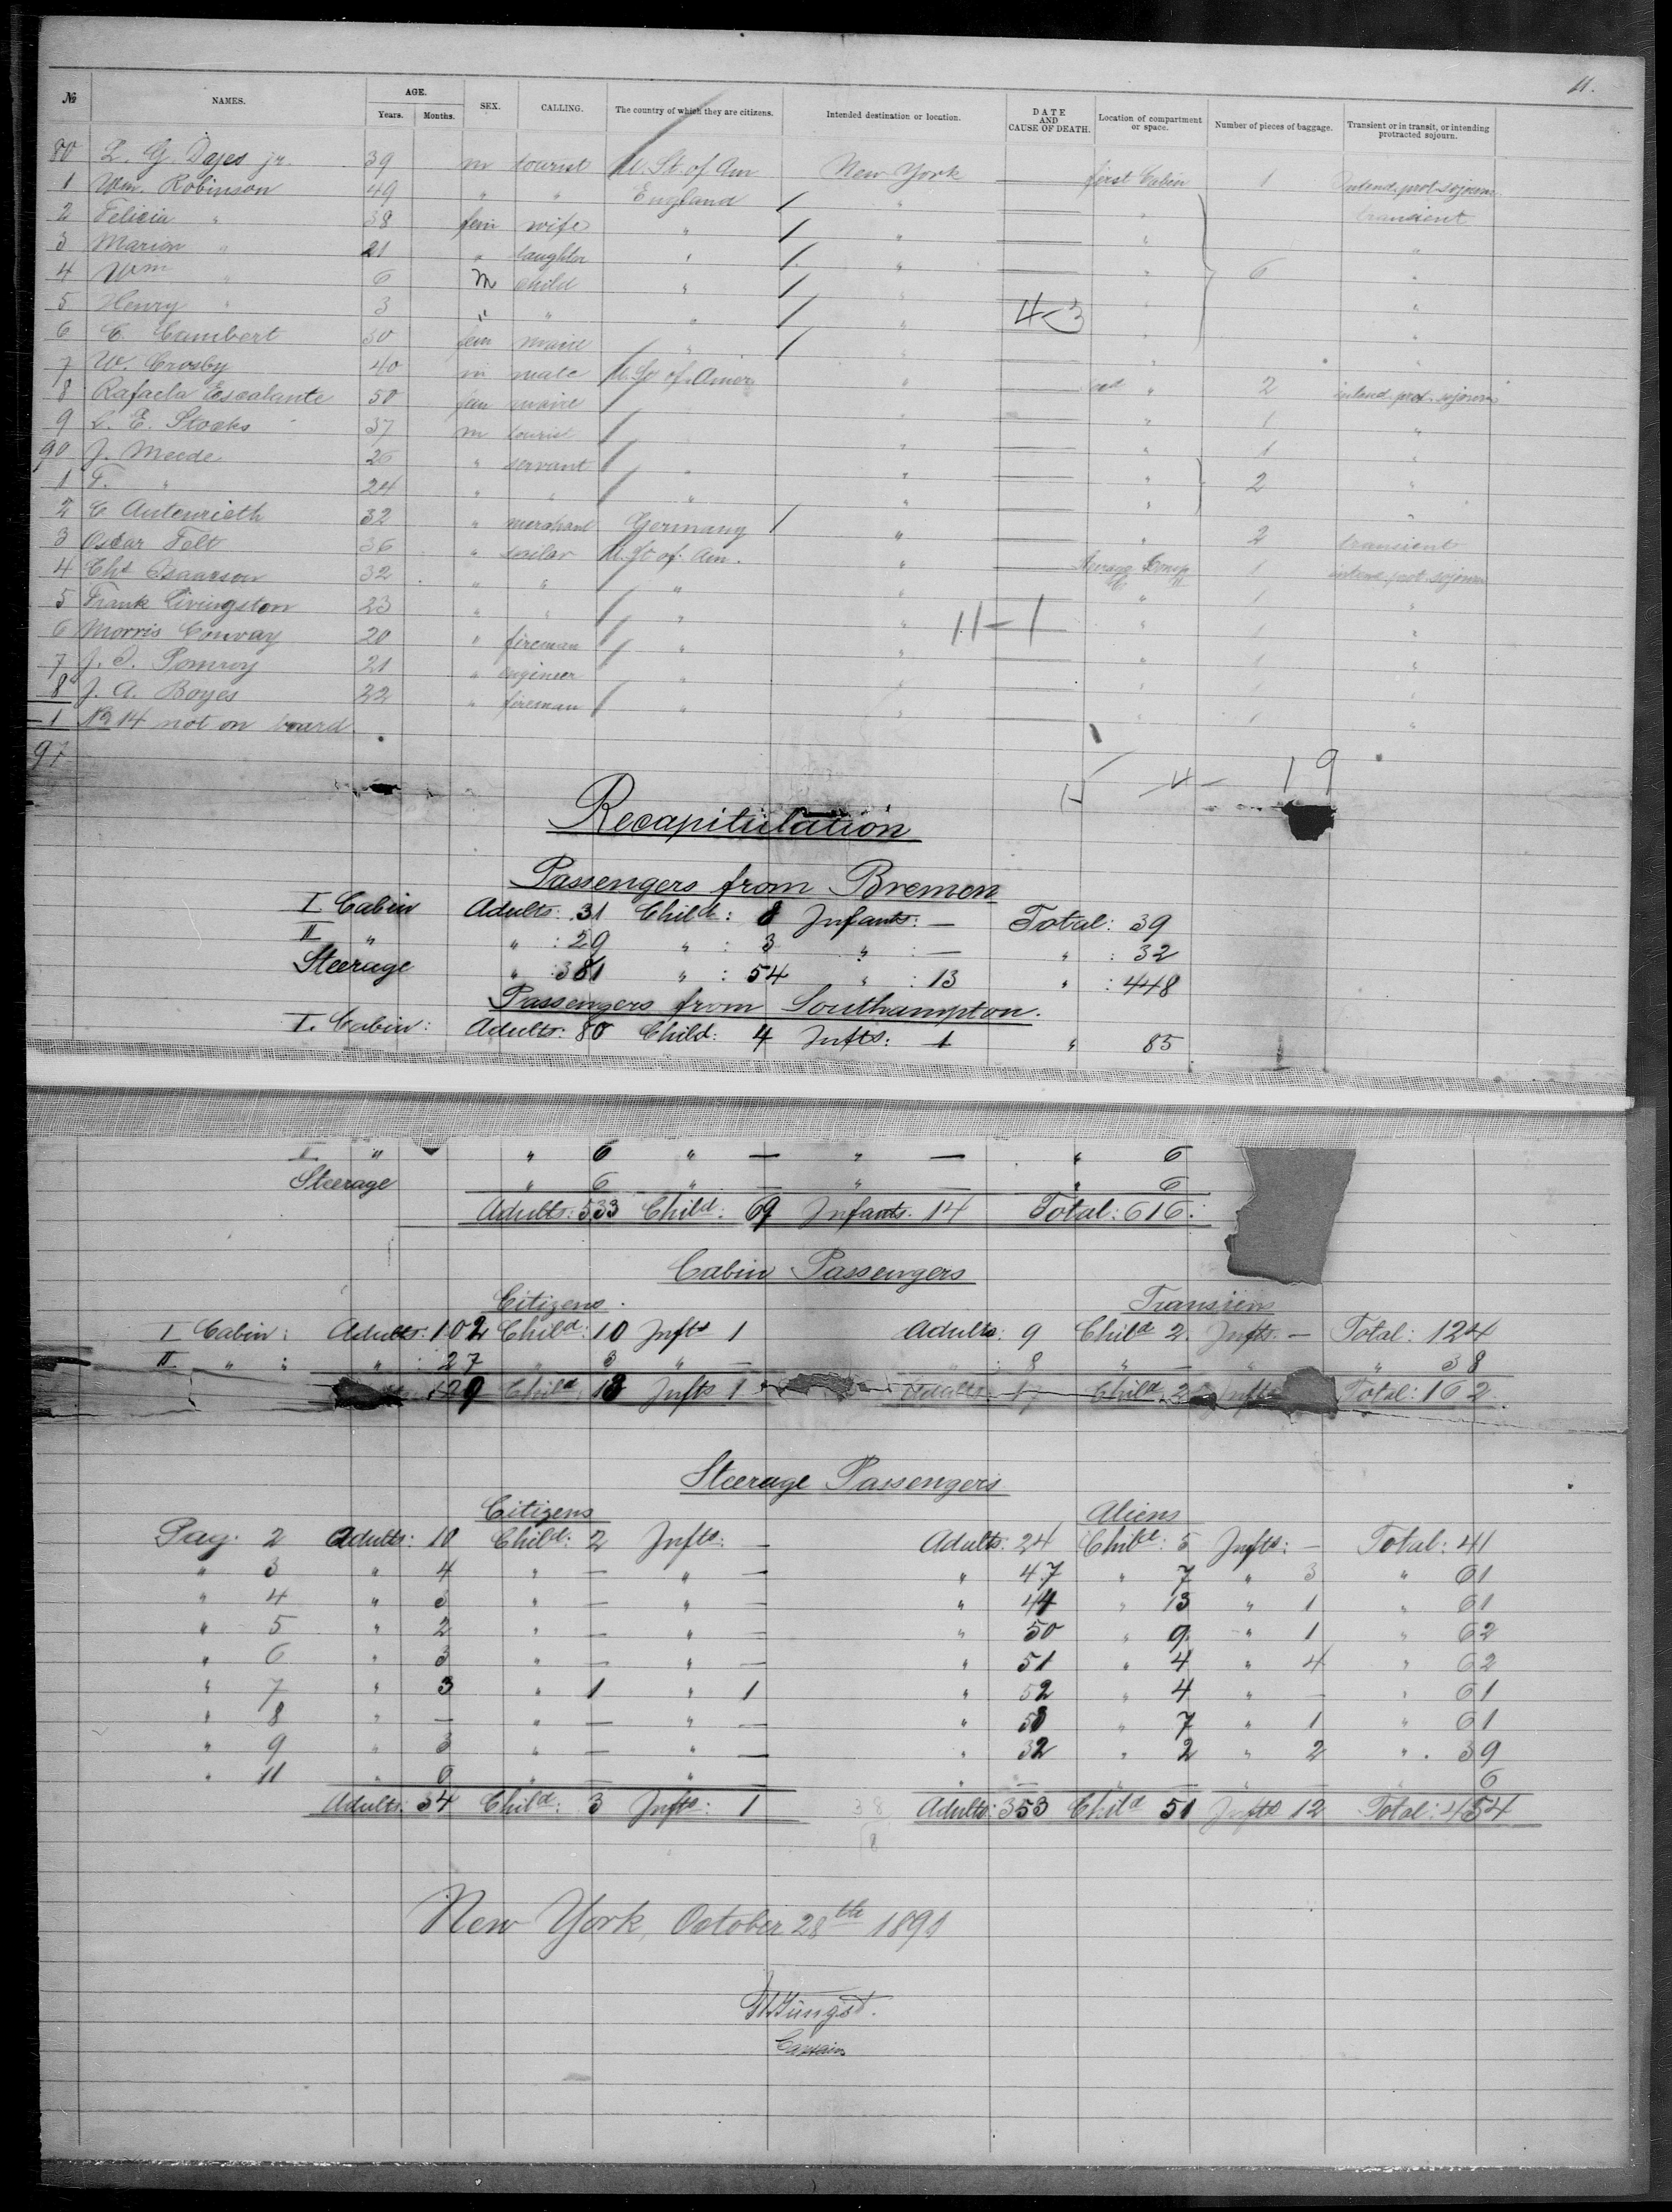 11.
№ NAMES. AGE. Years. Months. SEX. CALLING. The country of which they are citizens. Intended destination or location. DATE AND CAUSE OF DEATH. Location of compartment or space. Number of pieces of baggage. Transient or in transit, or intending protracted sojourn.
80 L. G. Dajes jr. 39 m tourist U. St. of Am New York first Cabin 1 Intend. prot. sojourn
1 Wm. Robinson 49 " " England / " " transient
2 Felicia " 38 fem wife " / " " "
3 Marion " 21 " daughter " / " " 6 "
4 Wm " 6 m child " / " " "
5 Henry " 3 " " " / " 4-3 " "
6 C. Cambert 30 fem maire " / " " "
7 W. Crosby 40 m male U. St of Amer " " 2 intend. prot. sojourn
8 Rafaela Escalante 50 fem maire / " " 1 "
9 L. E. Stocks 37 m tourist / " " 1 "
90 J. Meede 26 " servant / " " " 2 "
1 T. " 24 " " / " " " "
2 C Autenrieth 32 " merchant Germany / " " 2 transient
3 Oscar Felt 36 " sailor U. St of Am. " Steerage Comp 1 intend prot. sojourn
4 Chs Isaarson 32 " " / " " " 1 "
5 Frank Livingston 23 " " / " " 11-1 " 1 "
6 Morris Conway 20 " fireman / " " " 1 "
7 J. S. Pomroy 21 " engineer " " " 1 "
8 J. A. Boyes 22 " fireman / " " " 1 "
- 1 № 14 not on board
97
19
Recapitulation
Passengers from Bremen
I Cabin Adults: 31 Child: 8 Infants: — Total: 39
II " " : 29 " : 3 " : — " : 32
Steerage " : 381 " : 54 " : 13 " : 448
Passengers from Southampton.
I. Cabin: Adults: 80 Child: 4 Infts: 1 " 85
II " " 6 " — " — " 6
Steerage " 6 " — " — " 6
Adults: 533 Child: 69 Infants: 14 Total: 616.
Cabin Passengers
Citizens. Transiens
I Cabin: Adults: 102 Child: 10 Infts 1 Adults: 9 Child 2 Infts: — Total: 124
II " : " : 27 " 3 " — " : 8 " — " " 38
129 Child 13 Infts 1 Adults: 17 Child 2 Infts Total: 162.
Steerage Passengers
Citizens Aliens
Pag. 2 Adults: 10 Child: 2 Infts: — Adults: 24 Child: 5 Infts: — Total: 41
" 3 " 4 " — " — " 47 " 7 " 3 " 61
" 4 " 3 " — " — " 44 " 13 " 1 " 61
" 5 " 2 " — " — " 50 " 9 " 1 " 62
" 6 " 3 " — " — " 51 " 4 " 4 " 62
" 7 " 3 " 1 " 1 " 52 " 4 " — " 61
" 8 " — " — " — " 53 " 7 " 1 " 61
" 9 " 3 " — " — " 32 " 2 " 2 " 39
" 11 " 6 " — " — " — " — " — " 6
Adults: 34 Child: 3 Infts: 1 Adults: 353 Child 51 Infts 12 Total: 454
New York, October 28th 1891
Jüngst.
Captain